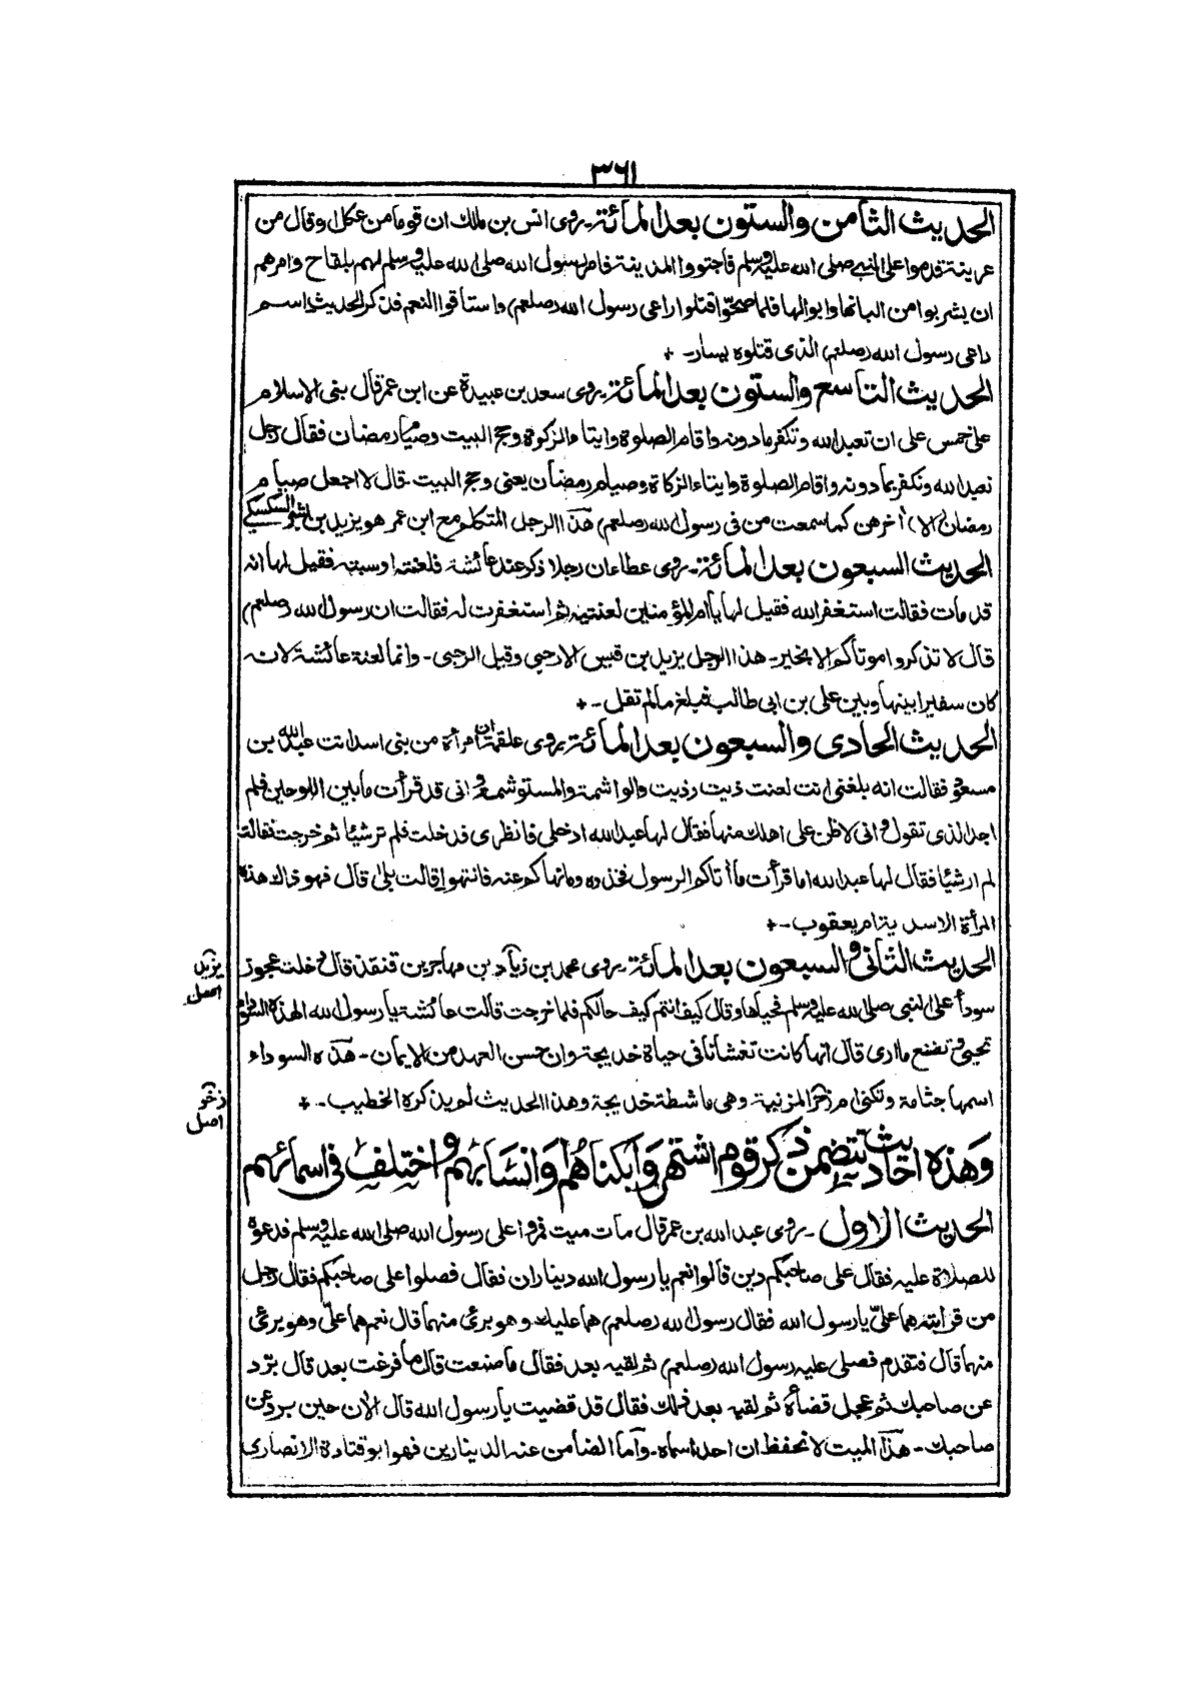 ٣٦١
الحديث الثامن والستون بعد المائة ـ روى انس بن ملك ان قوما من عكل او قال من
عرينة قدموا على النبي صلى الله عليه وسلم فاجتووا المدينة فامر رسول الله صلى الله عليه وسلم لهم بلقاح وامرهم
ان يشربوا من البانها وابوالها فلما صحوا قتلوا راعي رسول الله (صلعم) واستاقوا النعم فذكر الحديث اسم
راعي رسول الله (صلعم) الذى قتلوه يسار ـ +
الحديث التاسع والستون بعد المائة ـ روى سعد بن عبيدة عن ابن عمر قال بنى الاسلام
على خمس على ان تعبد الله وتكفر مادونه واقام الصلوة وايتاء الزكوة وحج البيت وصيام رمضان فقال رجل
نعبد الله ونكفر بما دونه واقام الصلوة وايتاء الزكاة وصيام رمضان يعنى وحج البيت ـ قال لا اجعل صيام
رمضان (الا) أخرهن كما سمعت من فى رسول الله (صلعم) هذا الرجل المتكلم مع ابن عمر هو يزيد بن بشر السكسكي
الحديث السبعون بعد المائة ـ روى عطاء ان رجلا ذكر عند عائشة فلعنته او سبته فقيل لها انه
قد مات فقالت استغفر الله فقيل لها يا ام المؤمنين لعنتيه ثم استغفرت له فقالت ان رسول الله (صلعم)
قال لا تذكروا موتاكم الا بخير ـ هذا الرجل يزيد بن قيس الارحبي وقيل الرحبى ـ وانما لعنة عائشة لانه
كان سفيرا بينها وبين علي بن ابى طالب فبلغ مالم تقل ـ +
الحديث الحادى والسبعون بعد المائة ـ روى علقمة ان امرأة من بنى اسد اتت عبد الله بن
مسعود فقالت انه بلغنى انت لعنت ذيت وذيت والواشمة والمستوشمة وانى قد قرأت مابين اللوحين فلم
اجد الذى تقول وانى لاظن على اهلك منها فقال لها عبد الله ادخلى فانظرى فدخلت فلم تر شيئا ثم خرجت فقالت
لم ار شيئا فقال لها عبد الله اما قرأت ما أتاكم الرسول فخذوه ومانهاكم عنه فانتهوا قالت بلى قال فهو ذاك هذه
المرأة الاسدية ام يعقوب ـ +
الحديث الثانى والسبعون بعد المائة ـ روى محمد بن زياد بن مهاجر بن قنفذ قال دخلت عجوز
يزيد اصل
سودأ على النبى صلى الله عليه وسلم فحياها وقال كيف انتم كيف حالكم فلما خرجت قالت عائشة يا رسول الله الهذه السوداء
تحيى وتصنع ما ارى قال انها كانت تغشانا فى حياة خديجة وان حسن العهد من الايمان ـ هذه السوداء
اسمها جثامة وتكنى ام زفر المزنية وهى ماشطة خديجة وهذا الحديث لم يذكره الخطيب ـ +
اصل
وهذه احاديث تتضمن ذكر قوم اشتهروا بكناهم وانسابهم واختلف فى اسمائهم
الحديث الاول ـ روى عبد الله بن عمر قال مات ميت فمروا على رسول الله صلى الله عليه وسلم فدعوه
للصلاة عليه فقال على صاحبكم دين قالوا نعم يا رسول الله ديناران فقال فصلوا على صاحبكم فقال رجل
من قرابته هما علي يا رسول الله فقال رسول الله (صلعم) هما عليك وهو برئ منهما قال نعم هما علي وهو برئ
منهما قال فتقدم فصلى عليه رسول الله (صلعم) ثم لقيه بعد فقال ما صنعت قال ما فرغت بعد قال برد
عن صاحبك ثم عجل قضأه ثم لقيه بعد ذلك فقال قد قضيت يا رسول الله قال الان حين برد عن
صاحبك ـ هذا الميت لا نحفظ ان احدا سماه ـ وأما الضامن عنه الدينارين فهو ابو قتادة الانصارى